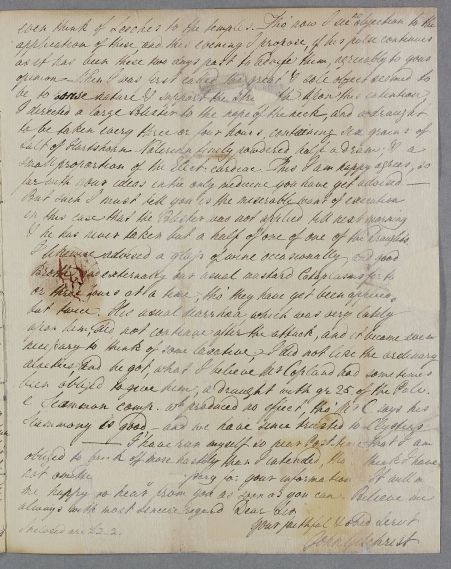 even think of Leeches to the temples. Tho' now I see no objection to the
application of these, and this evening I propose, if his pulse continues
as it has been these two days past to advise them, agreeably to your
opinion. When I was first called his great & sole object seemed to
be to rouse nature & support the Upon this intention
I directed a large blister to the nape of the neck, and a draught
to be taken every three or four hours, containing six grains of
Salt of Hartshorn Valerian finely powdered half a dram, & a
small proportion of the Elect. cardiac. This I am happy agrees, so
far with your ideas in the only medicine you have yet advised —
But such I must tell you is the miserable want of execution
in this case that the Blister was not applied till next morning
& he has never taken but a half of one of the Draughts
I likewise advised a glass of wine occasionally and good
broths, and externally but usual mustard Cataplasms for
or three hours at a time, tho' they have yet been applied
but twice. His usual diarrhœa which was very lately
upon him, did not continue after the attack, and it became even
necessary to think of some laxative. I did not like the ordinary
alactics, and he got, what I believe Mr Copland had sometimes
been obliged to give him, a draught with gr. 25 of the Pulv.
e Scammon comp. it produced no effect, tho' Mr C. says his
Scammony is good — and we have since trusted to Clysters
— I have run myself so near Post hour that I am
obliged to break off more hastily than I intended, tho' I think I have
not omitted for your information. It will
me happy to hear from you as soon as you can. believe me
always with most sincere regard Dear Sir
Your faithful & obed servt
John Gilchrist
Inclosed are £2.2.